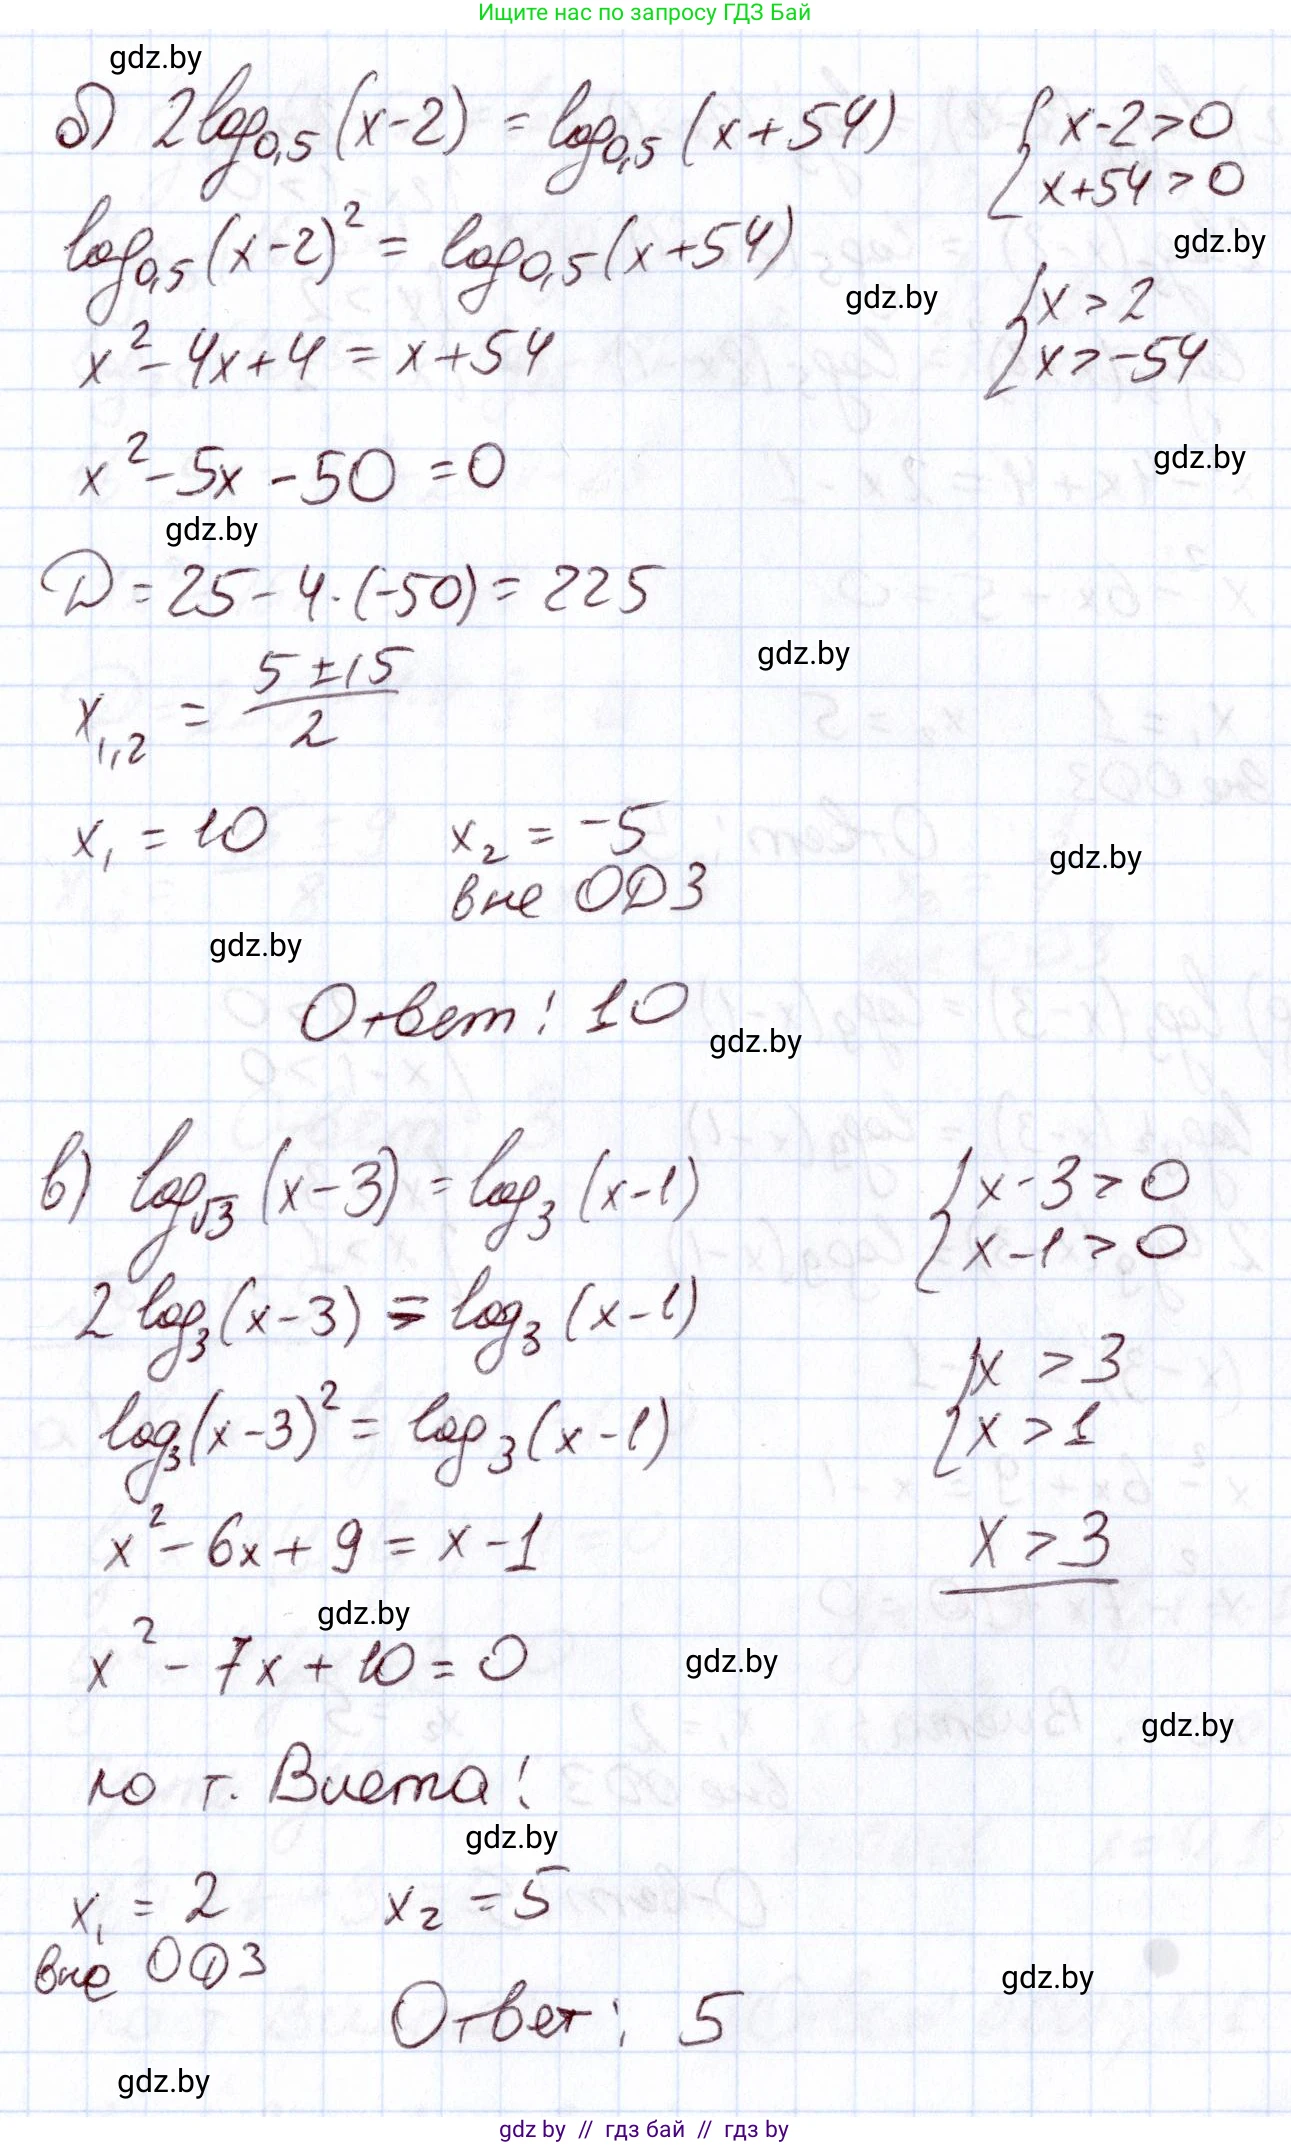 Ищите нас по запросу ГДЗ Бай
gdz.by
б) 2log₀,₅(x-2) = log₀,₅(x+54) { x-2>0
x+54>0
gdz.by
log₀,₅(x-2)² = log₀,₅(x+54)
gdz.by
{ x > 2
x > -54
x² - 4x + 4 = x + 54
gdz.by
x² - 5x - 50 = 0
gdz.by
D = 25 - 4·(-50) = 225
gdz.by
x₁,₂ = (5 ± 15)/2
x₁ = 10 x₂ = -5
вне ОДЗ
gdz.by
gdz.by
Ответ: 10
gdz.by
в) log√3 (x-3) = log₃ (x-1) { x-3 > 0
x-1 > 0
2 log₃(x-3) = log₃ (x-1)
{ x > 3
x > 1
log₃(x-3)² = log₃(x-1)
x² - 6x + 9 = x - 1 x > 3
gdz.by
x² - 7x + 10 = 0
gdz.by
gdz.by
по т. Виета:
gdz.by
x₁ = 2 x₂ = 5
вне ОДЗ
gdz.by
Ответ: 5
gdz.by
gdz by // гдз бай // гдз by